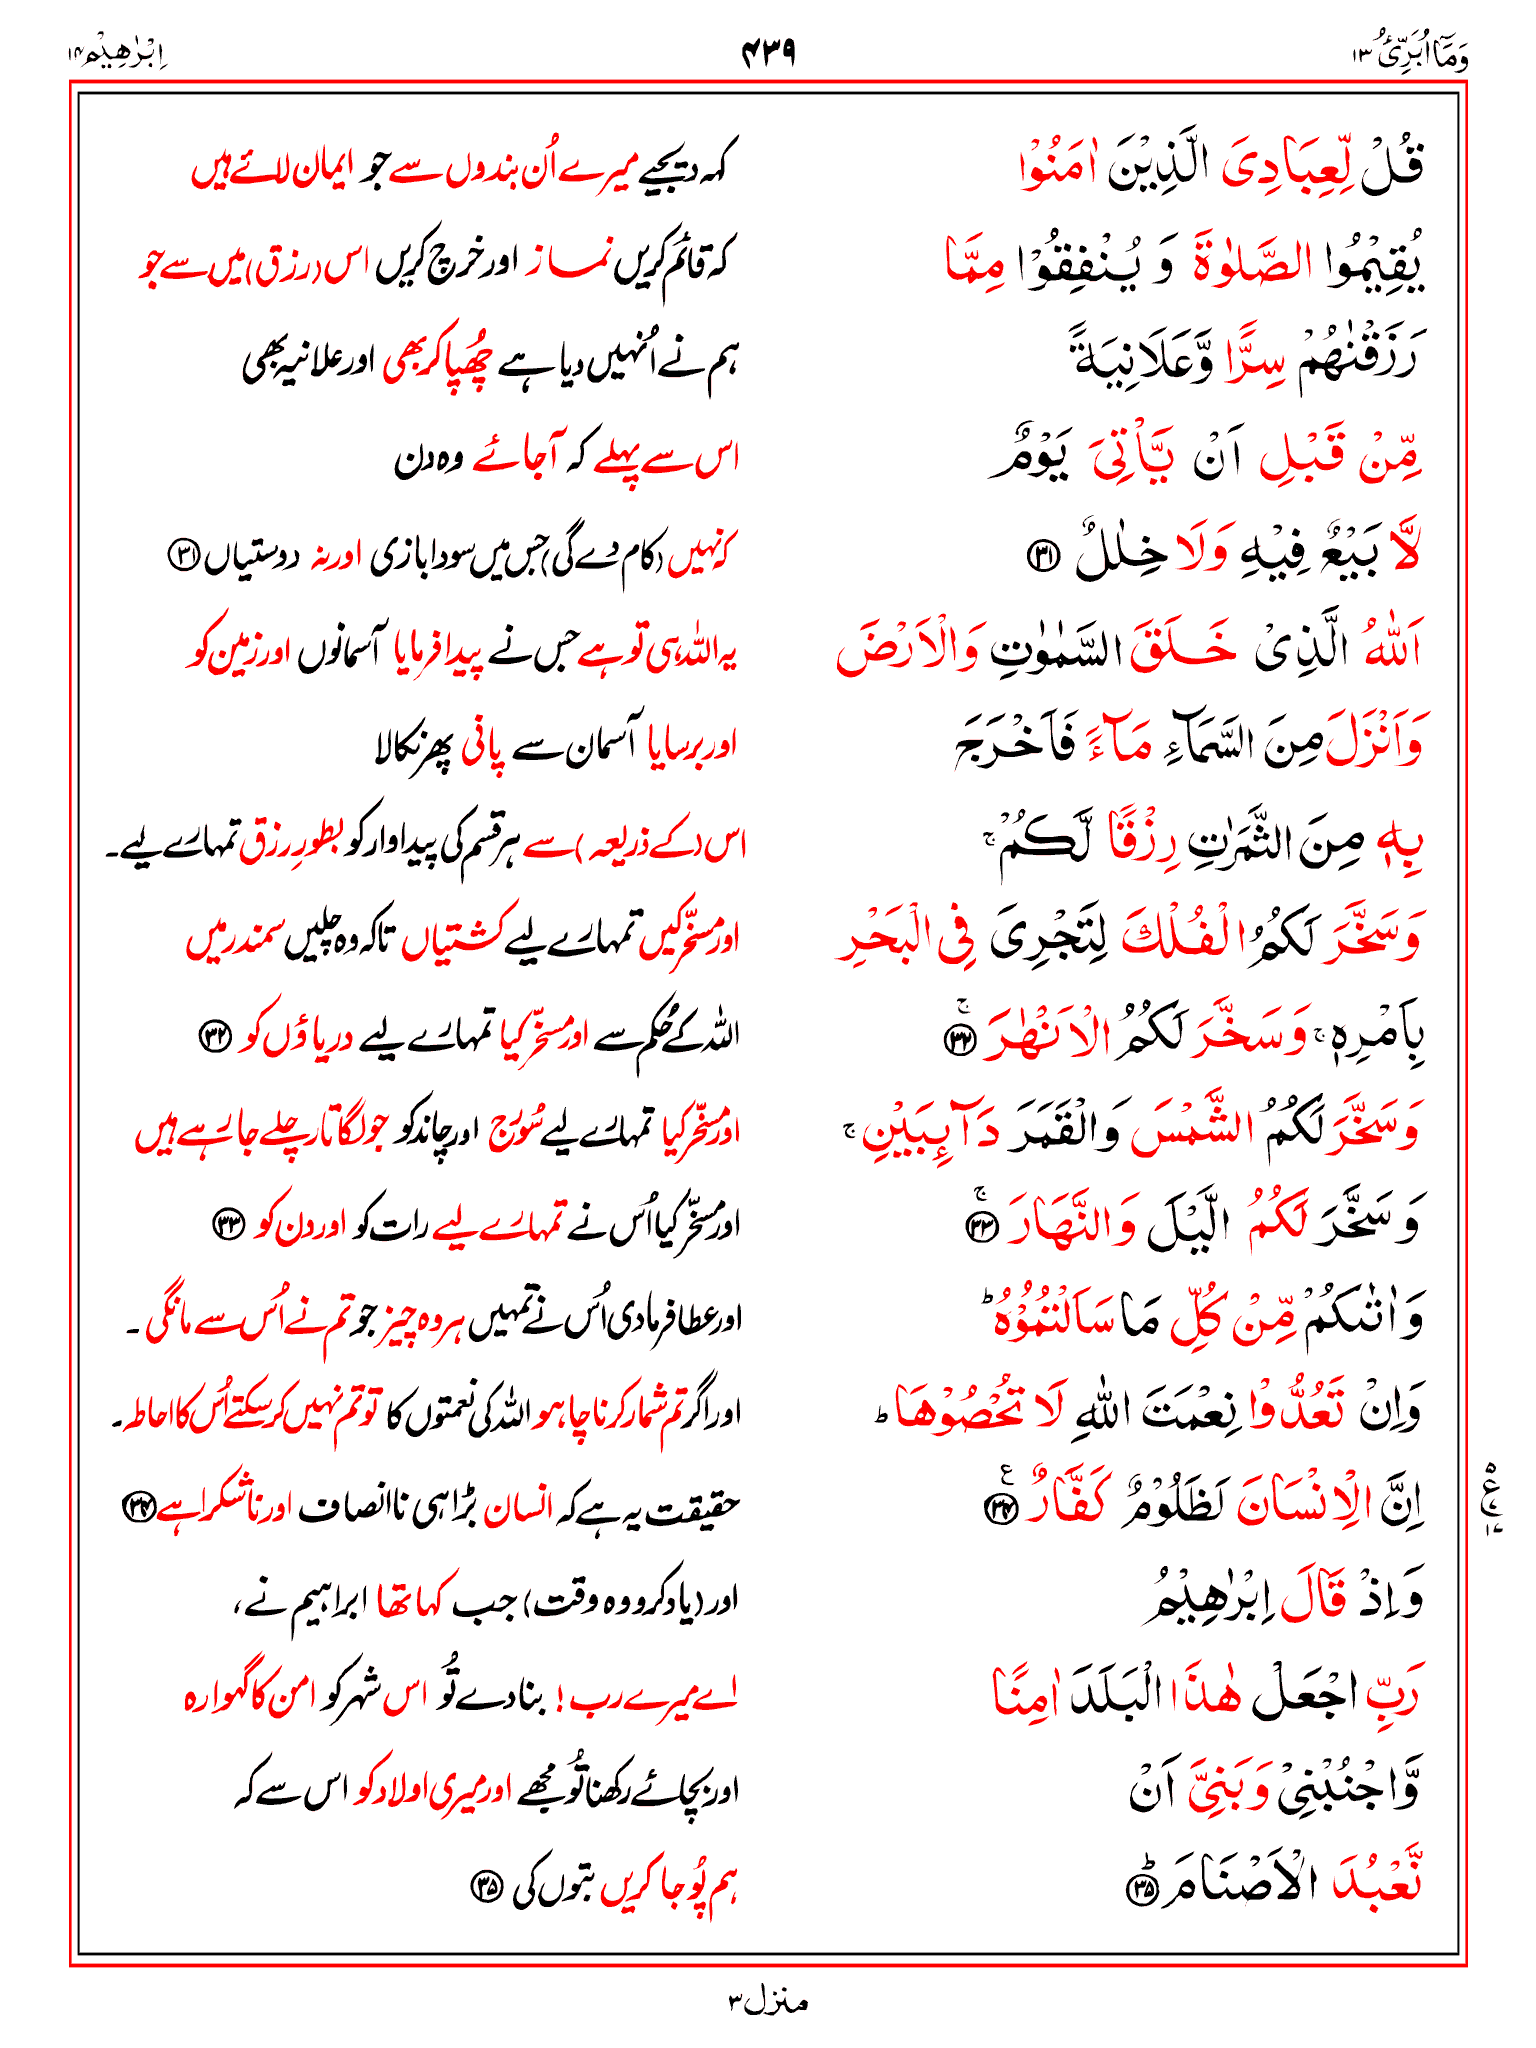 وَمَآ اُبَرِّئُ ۱۳ ۴۳۹ اِبْرٰهِيْم ۱۴
قُلْ لِّعِبَادِىَ الَّذِيْنَ اٰمَنُوْا کہہ دیجیے میرے اُن بندوں سے جو ایمان لائے ہیں
يُقِيْمُوا الصَّلٰوةَ وَ يُنْفِقُوْا مِمَّا کہ قائم کریں نماز اور خرچ کریں اس (رزق) میں سے جو
رَزَقْنٰهُمْ سِرًّا وَّعَلَانِيَةً ہم نے اُنہیں دیا ہے چُھپا کر بھی اور علانیہ بھی
مِّنْ قَبْلِ اَنْ يَّاْتِىَ يَوْمٌ اس سے پہلے کہ آجائے وہ دن
لَّا بَيْعٌ فِيْهِ وَلَا خِلٰلٌ ۳۱ کہ نہیں (کام دے گی) جس میں سودا بازی اور نہ دوستیاں ۳۱
اَللّٰهُ الَّذِىْ خَلَقَ السَّمٰوٰتِ وَالْاَرْضَ یہ اللہ ہی تو ہے جس نے پیدا فرمایا آسمانوں اور زمین کو
وَاَنْزَلَ مِنَ السَّمَآءِ مَآءً فَاَخْرَجَ اور برسایا آسمان سے پانی پھر نکالا
بِهٖ مِنَ الثَّمَرٰتِ رِزْقًا لَّكُمْ ۚ اس (کے ذریعہ) سے ہر قسم کی پیداوار کو بطورِ رزق تمہارے لیے۔
وَسَخَّرَ لَكُمُ الْفُلْكَ لِتَجْرِىَ فِى الْبَحْرِ اور مسخّر کیں تمہارے لیے کشتیاں تاکہ وہ چلیں سمندر میں
بِاَمْرِهٖ ۚ وَسَخَّرَ لَكُمُ الْاَنْهٰرَ ۚ ۳۲ اللہ کے حُکم سے اور مسخّر کیا تمہارے لیے دریاؤں کو ۳۲
وَسَخَّرَ لَكُمُ الشَّمْسَ وَالْقَمَرَ دَآئِبَيْنِ ۚ اور مسخّر کیا تمہارے لیے سُورج اور چاند کو جو لگا تار چلے جا رہے ہیں
وَسَخَّرَ لَكُمُ الَّيْلَ وَالنَّهَارَ ۚ ۳۳ اور مسخّر کیا اُس نے تمہارے لیے رات کو اور دن کو ۳۳
وَاٰتٰىكُمْ مِّنْ كُلِّ مَا سَاَلْتُمُوْهُ ؕ اور عطا فرما دی اُس نے تمہیں ہر وہ چیز جو تم نے اُس سے مانگی ۔
وَاِنْ تَعُدُّوْا نِعْمَتَ اللّٰهِ لَا تُحْصُوْهَا ؕ اور اگر تم شمار کرنا چاہو اللہ کی نعمتوں کا تو تم نہیں کر سکتے اُس کا احاطہ ۔
اِنَّ الْاِنْسَانَ لَظَلُوْمٌ كَفَّارٌ ۳۴ ع حقیقت یہ ہے کہ انسان بڑا ہی ناانصاف اور ناشکرا ہے ۳۴
وَاِذْ قَالَ اِبْرٰهِيْمُ اور (یاد کرو وہ وقت) جب کہا تھا ابراہیم نے،
رَبِّ اجْعَلْ هٰذَا الْبَلَدَ اٰمِنًا اے میرے رب! بنا دے تُو اس شہر کو امن کا گہوارہ
وَّاجْنُبْنِىْ وَبَنِىَّ اَنْ اور بچائے رکھنا تُو مجھے اور میری اولاد کو اس سے کہ
نَّعْبُدَ الْاَصْنَامَ ؕ ۳۵ ہم پُوجا کریں بتوں کی ۳۵
منزل ۳